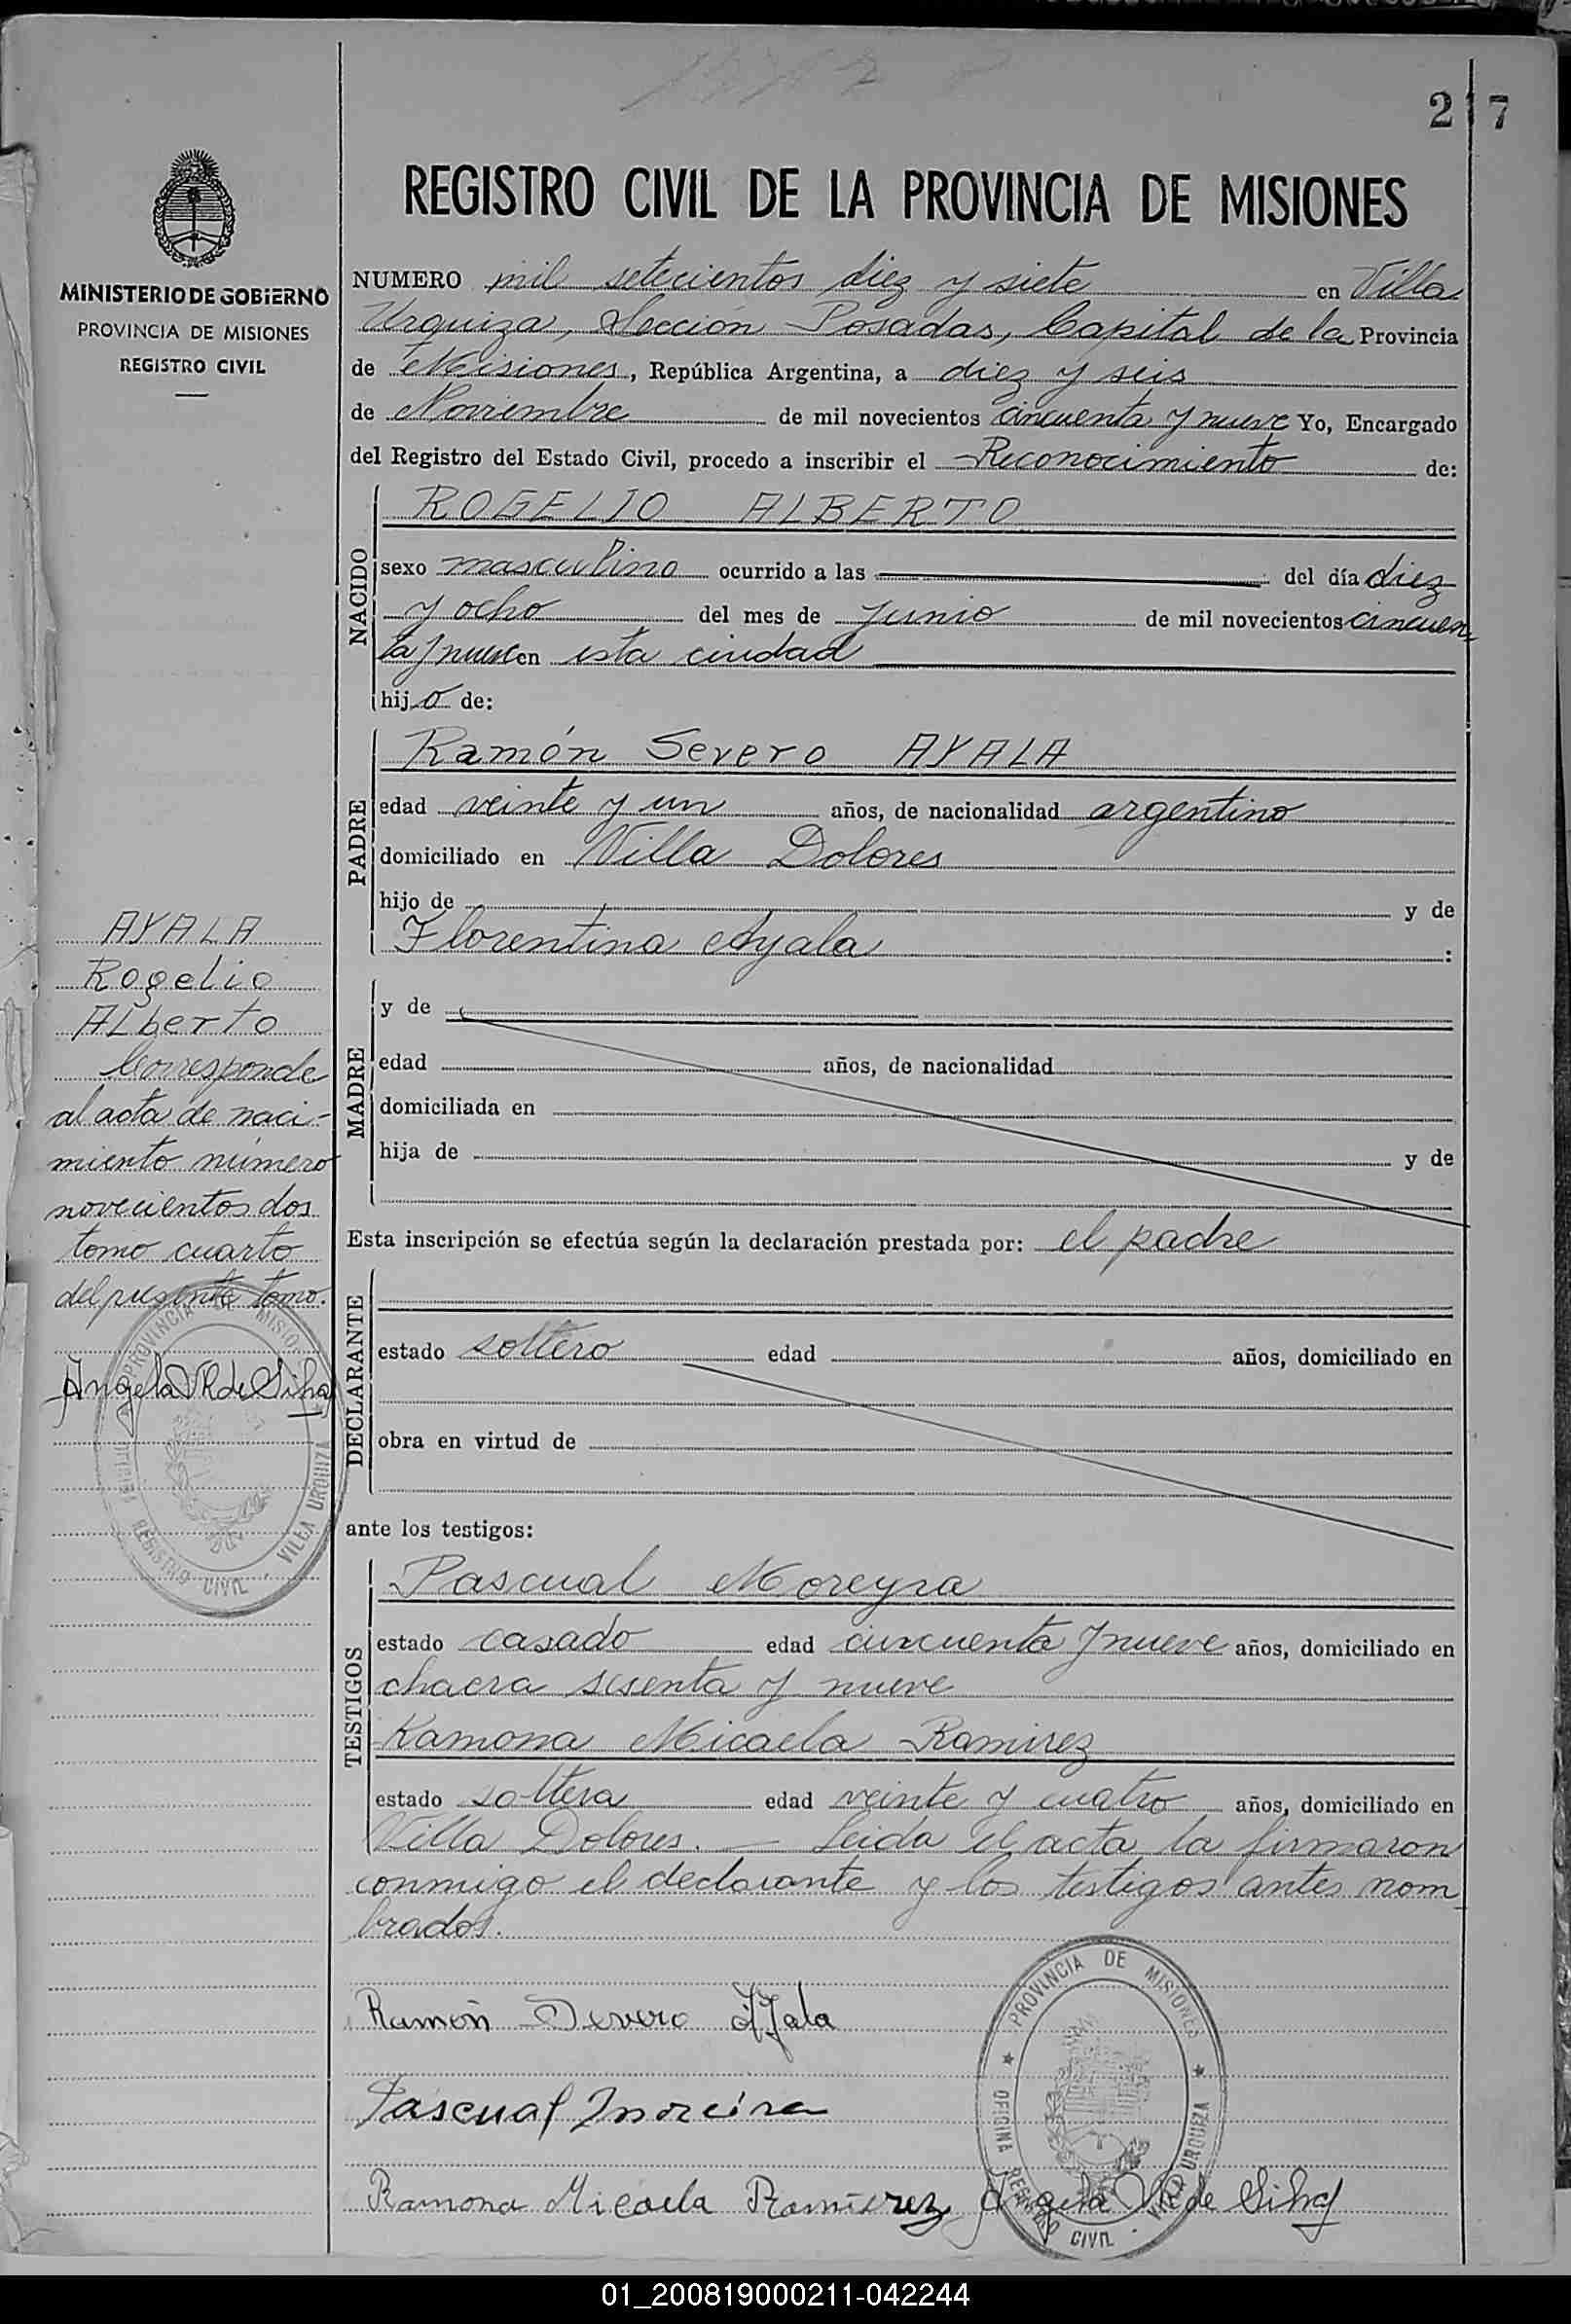 217
REGISTRO CIVIL DE LA PROVINCIA DE MISIONES
MINISTERIO DE GOBIERNO
PROVINCIA DE MISIONES
REGISTRO CIVIL
NUMERO mil setecientos diez y siete en Villa
Urquiza, Sección Posadas, Capital de la Provincia
de Misiones, República Argentina, a diez y seis
de Noviembre de mil novecientos cincuenta y nueve Yo, Encargado
del Registro del Estado Civil, procedo a inscribir el Reconocimiento de:
NACIDO
ROGELIO ALBERTO
sexo masculino ocurrido a las del día diez
y ocho del mes de junio de mil novecientos cincuen
ta y nueve en esta ciudad
hijo de:
PADRE
Ramón Severo AYALA
edad veinte y un años, de nacionalidad argentino
domiciliado en Villa Dolores
hijo de y de
Florentina Ayala :
MADRE
y de
edad años, de nacionalidad
domiciliada en
hija de y de
Esta inscripción se efectúa según la declaración prestada por: el padre
DECLARANTE
estado soltero edad años, domiciliado en
obra en virtud de
ante los testigos:
TESTIGOS
Pascual Moreyra
estado casado edad cincuenta y nueve años, domiciliado en
chacra sesenta y nueve
Ramona Micaela Ramirez
estado soltera edad veinte y cuatro años, domiciliado en
Villa Dolores. — Leida el acta la firmaron
conmigo el declarante y los testigos antes nom
brados.
Ramón Severo Ayala
Pascual Moreira
Ramona Micaela Ramirez Angela VR de Silva
PROVINCIA DE MISIONES
OFICINA REGISTRO CIVIL - VILLA URQUIZA
AYALA
Rogelio
ALberto
Corresponde
al acta de naci-
miento número
novecientos dos
tomo cuarto
del presente tomo.
Angela VR de Silva
PROVINCIA DE MISIO
OFICINA REGISTRO CIVIL - VILLA URQUIZA
01_200819000211-042244